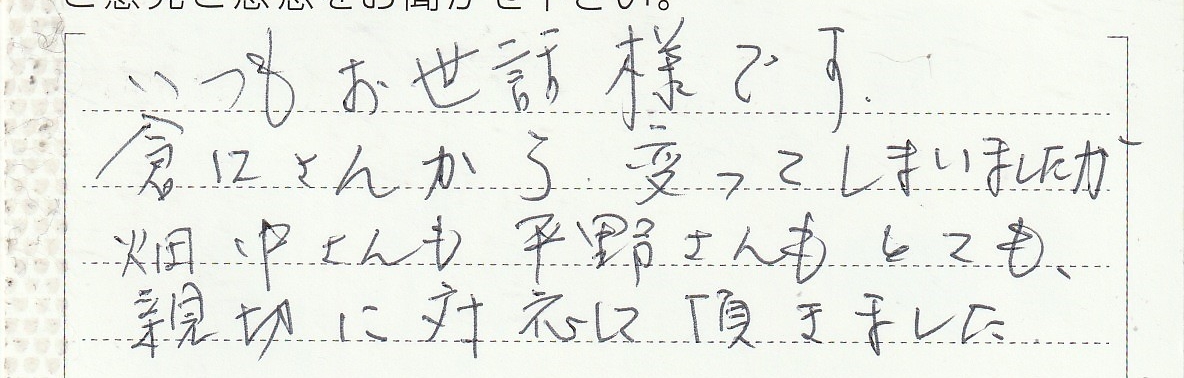 ご意見ご感想をお聞かせ下さい。
いつもお世話様です.
倉口さんから変ってしまいましたが
畑中さんも平野さんもとても、
親切に対応して頂きました